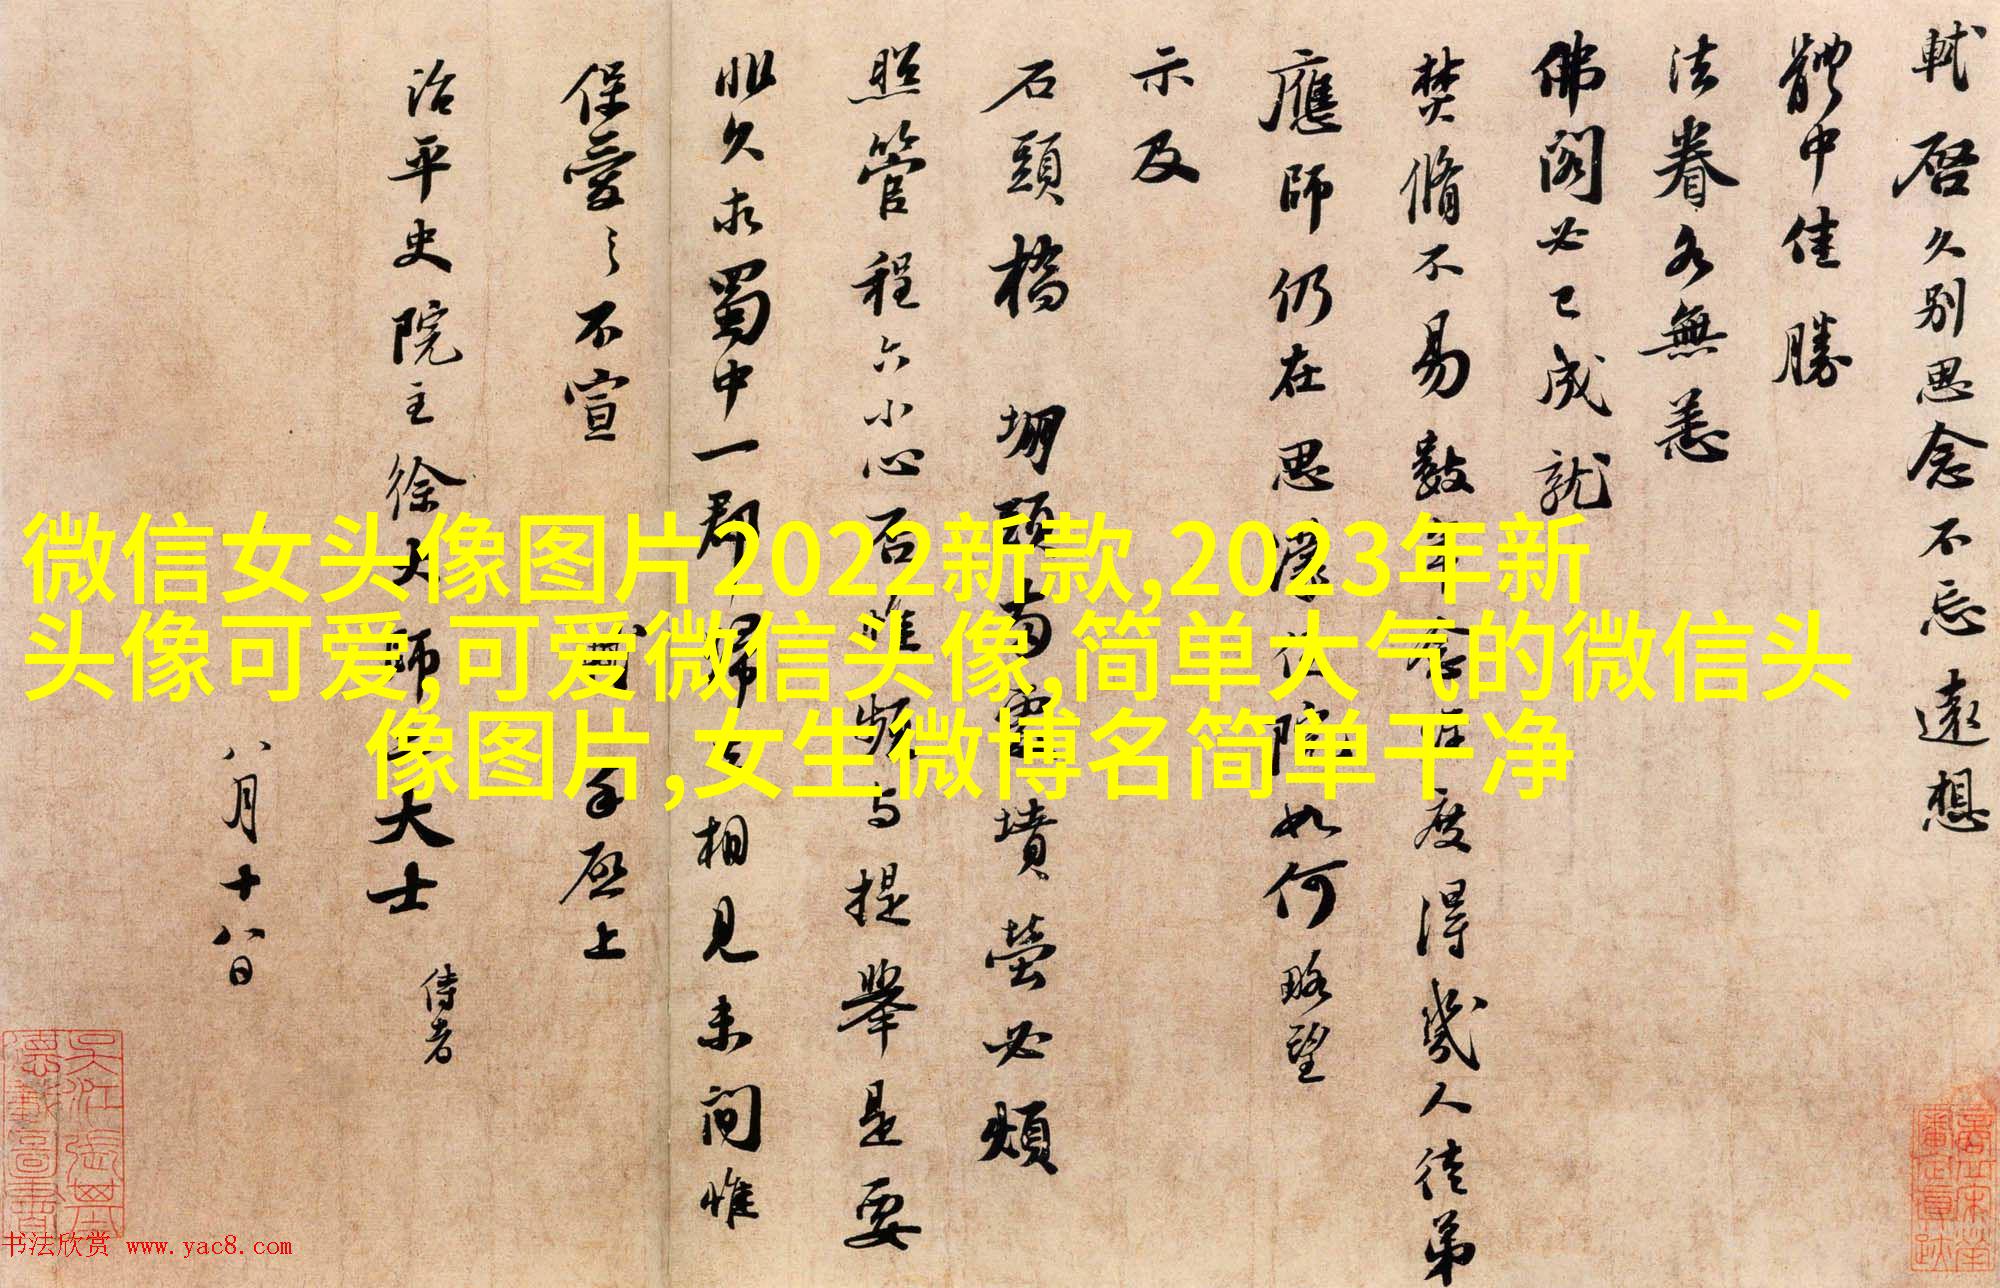 軾啓久別思念不忘遠想
體中佳勝
法眷各無恙
佛閣必已成就
焚脩不易數年念經度得幾人徒弟
應師仍在思濛住院如何略望
示及
石頭橋堋頭兩處墳塋必煩
照管程六小心否惟頻与提舉是要
非久求蜀中一郡歸去相見未間惟
保愛之不宣
軾手啓上
治平史院主徐大師二大士侍者
八月十八日
微信女头像图片2022新款,2023年新
头像可爱,可爱微信头像,简单大气的微信头
像图片,女生微博名简单干净
书法欣赏 www.yac8.com